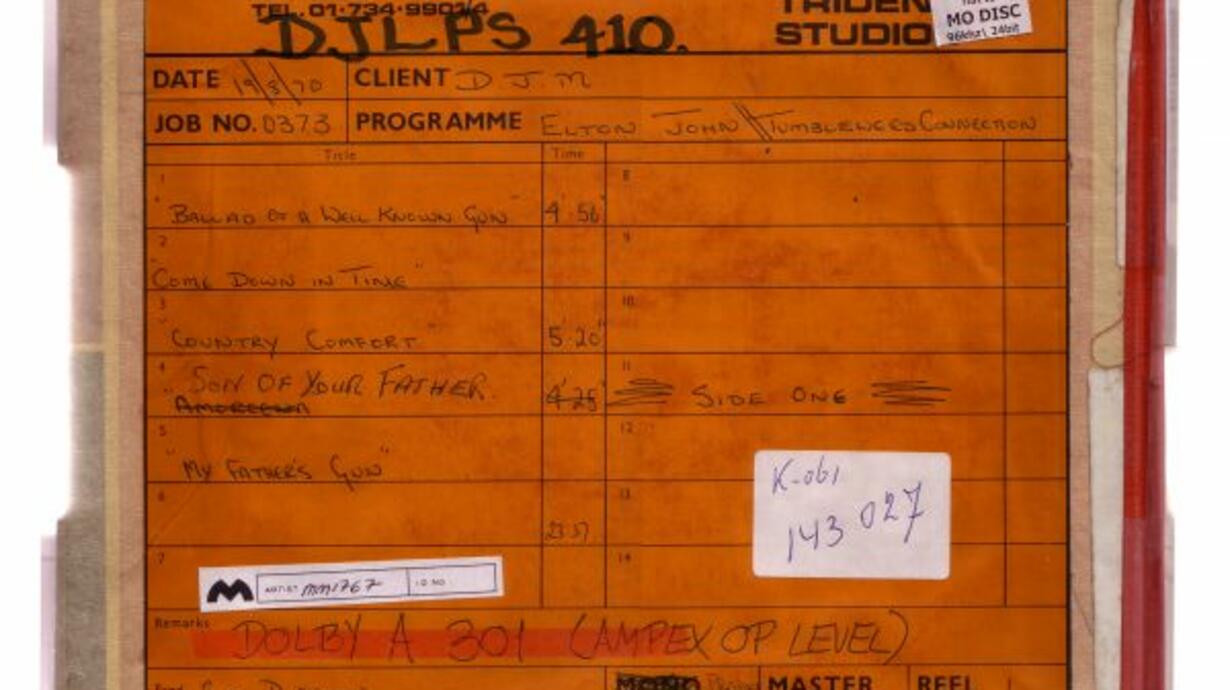 TEL.01-734-9901/4
TRIDEN
STUDIO
MO DISC
96khz\ 24bit
DJLPS 410.
DATE 19/8/70 CLIENT D J M
JOB NO. 0373 PROGRAMME ELTON JOHN \\ TUMBLEWEED CONNECTION
Title Time
1 8
"BALLAD OF A WELL KNOWN GUN" 4'56"
2 9
"COME DOWN IN TIME"
3 10
"COUNTRY COMFORT" 5'20"
4 11
"SON OF YOUR FATHER. 4'25" SIDE ONE
AMOREENA
5 12
"MY FATHER'S GUN"
6 13
23.37
K-061
143 027
7 14
ARTIST mm1767 ID NO
Remarks DOLBY A 301 (AMPEX OP LEVEL)
MONO MASTER REEL 1